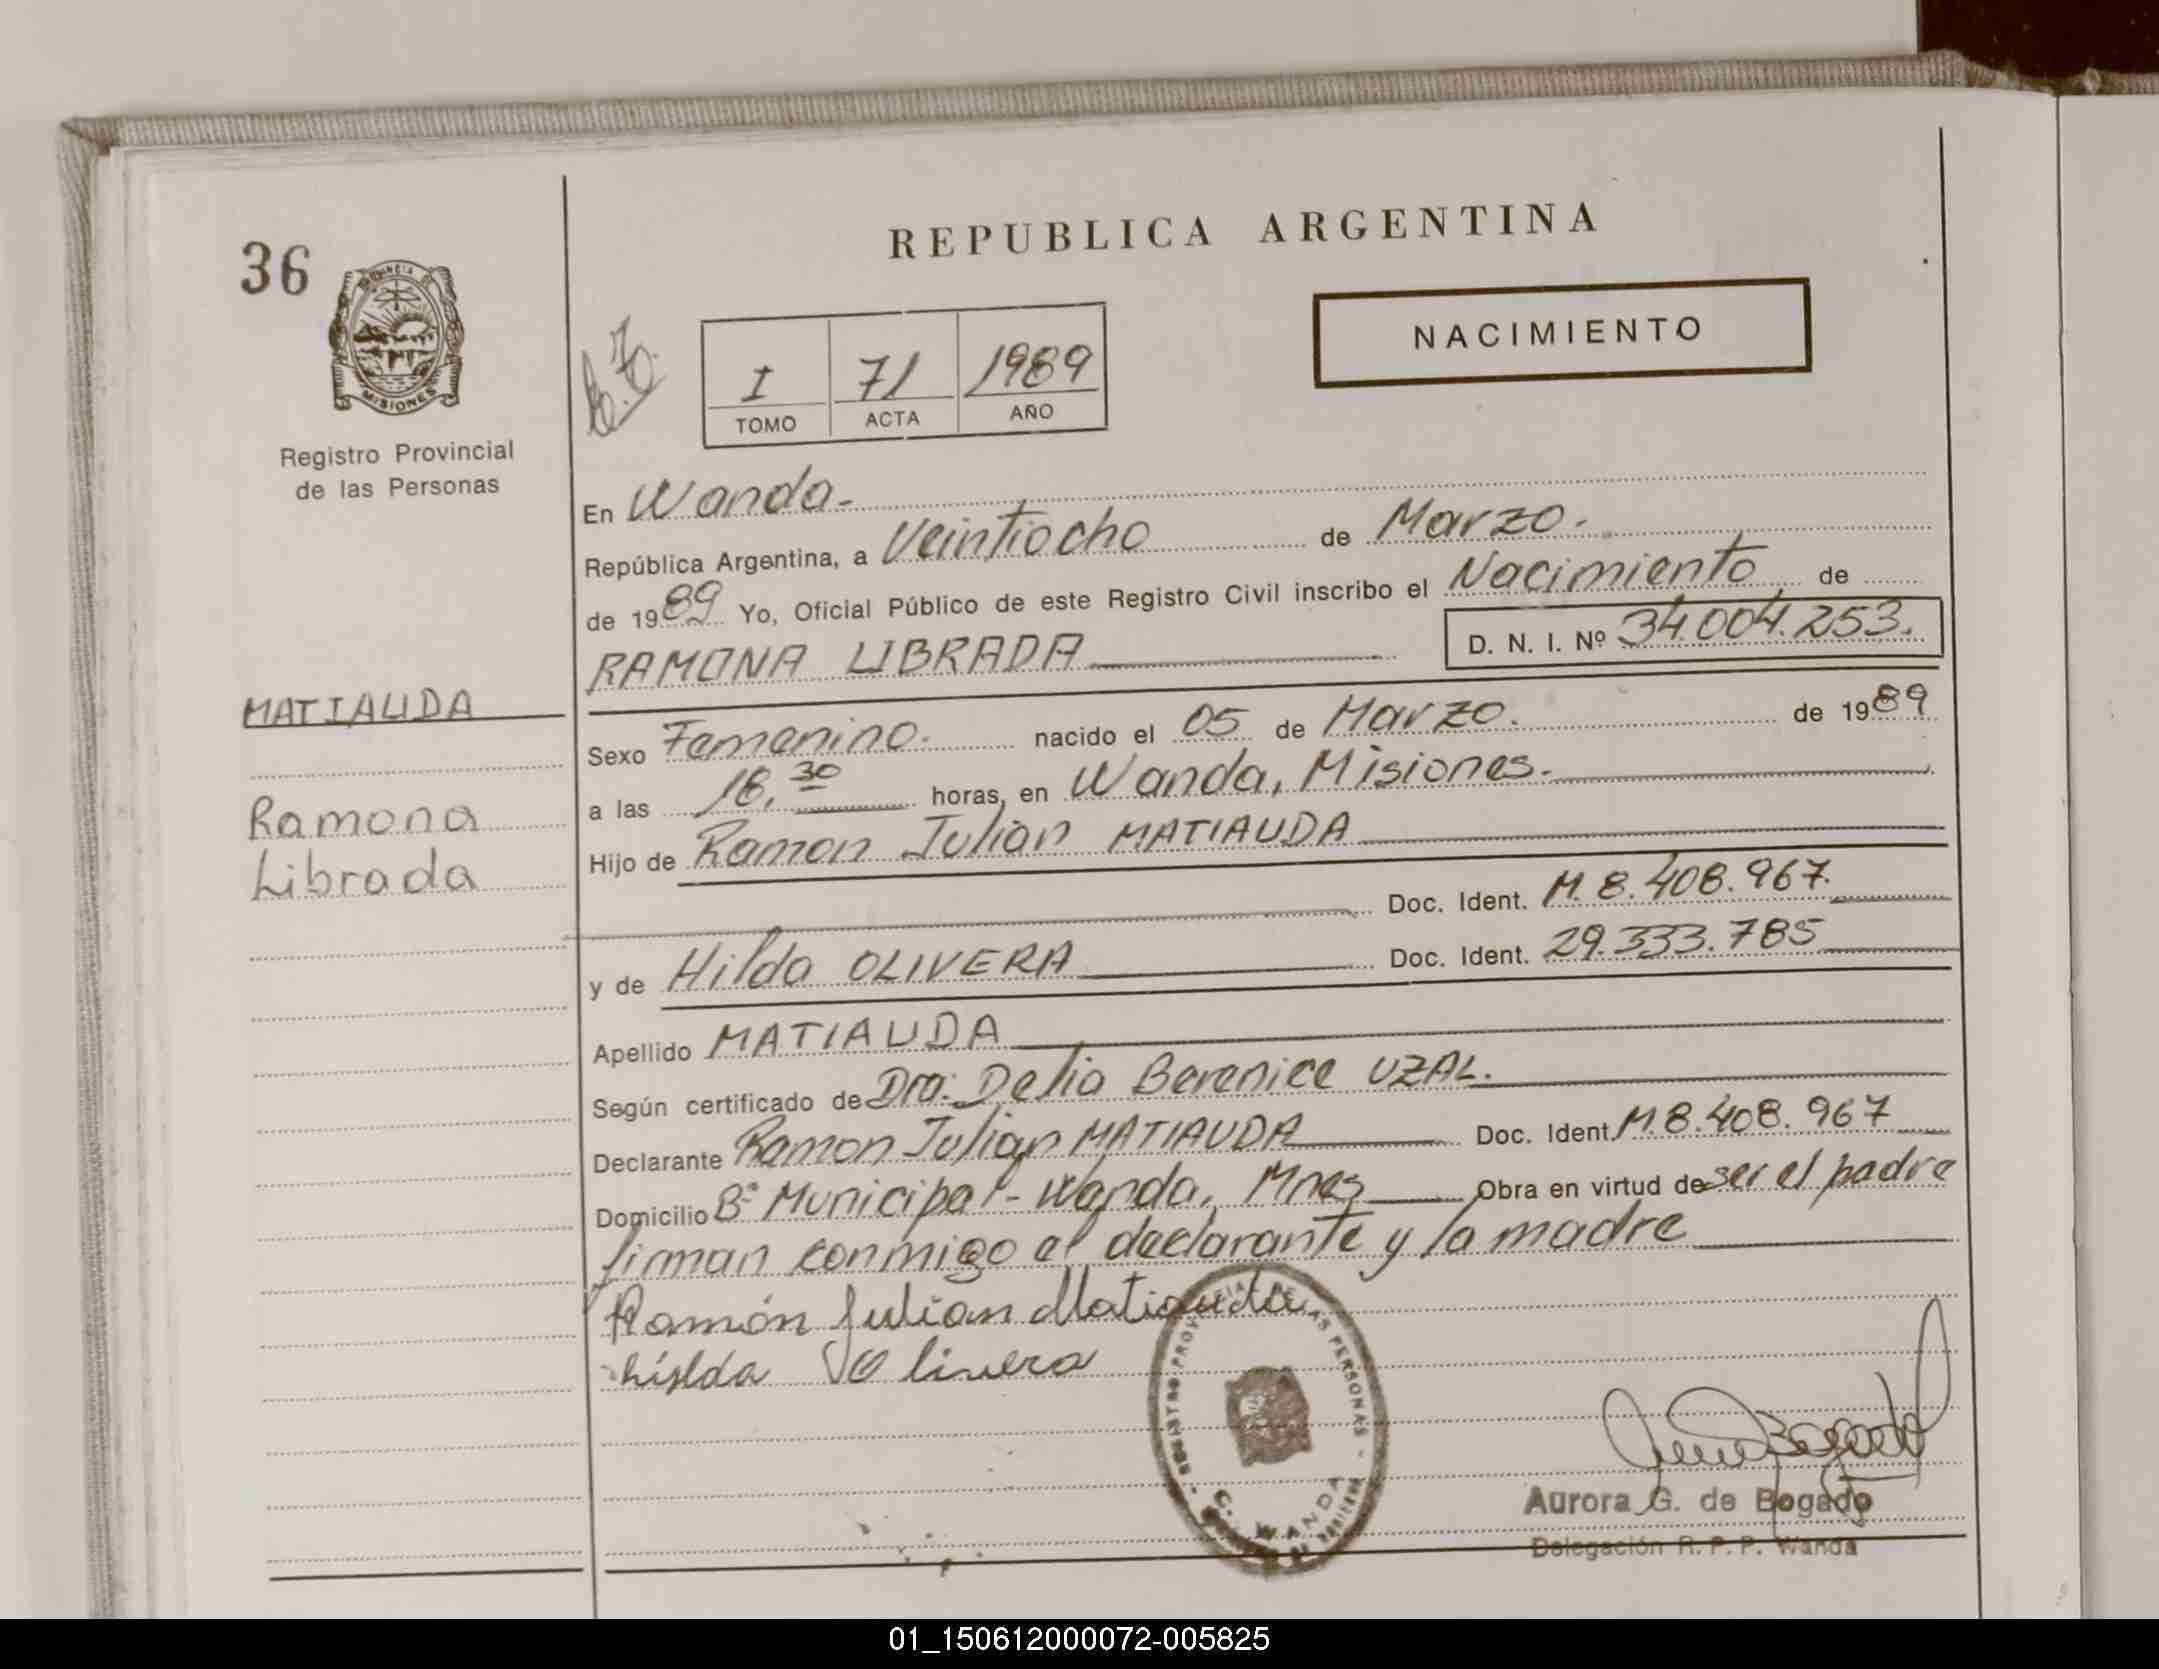 REPUBLICA ARGENTINA
36
NACIMIENTO
PROVINCIA DE
MISIONES
Registro Provincial
de las Personas
I 71 1989
TOMO ACTA AÑO
En Wanda.-
República Argentina, a Veintiocho de Marzo.
de 1989 Yo, Oficial Público de este Registro Civil inscribo el Nacimiento de
RAMONA LIBRADA D. N. I. Nº 34.004.253.
MATIAUDA
Ramona
Librada
Sexo Femenino. nacido el 05 de Marzo. de 1989
a las 18,30 horas, en Wanda, Misiones.
Hijo de Ramon Julian MATIAUDA
Doc. Ident. M. 8.408.967.
y de Hilda OLIVERA Doc. Ident. 29.333.785
Apellido MATIAUDA
Según certificado de Dra. Delia Berenice UZAL.
Declarante Ramon Julian MATIAUDA Doc. Ident. M.8.408.967
Domicilio Bº Municipal - Wanda, Mnes Obra en virtud de ser el padre
firman conmigo el declarante y la madre
Ramón Julian Matiauda
hilda Olivera
WANDA
Aurora G. de Bogado
Delegación R. P. P. Wanda
01_150612000072-005825